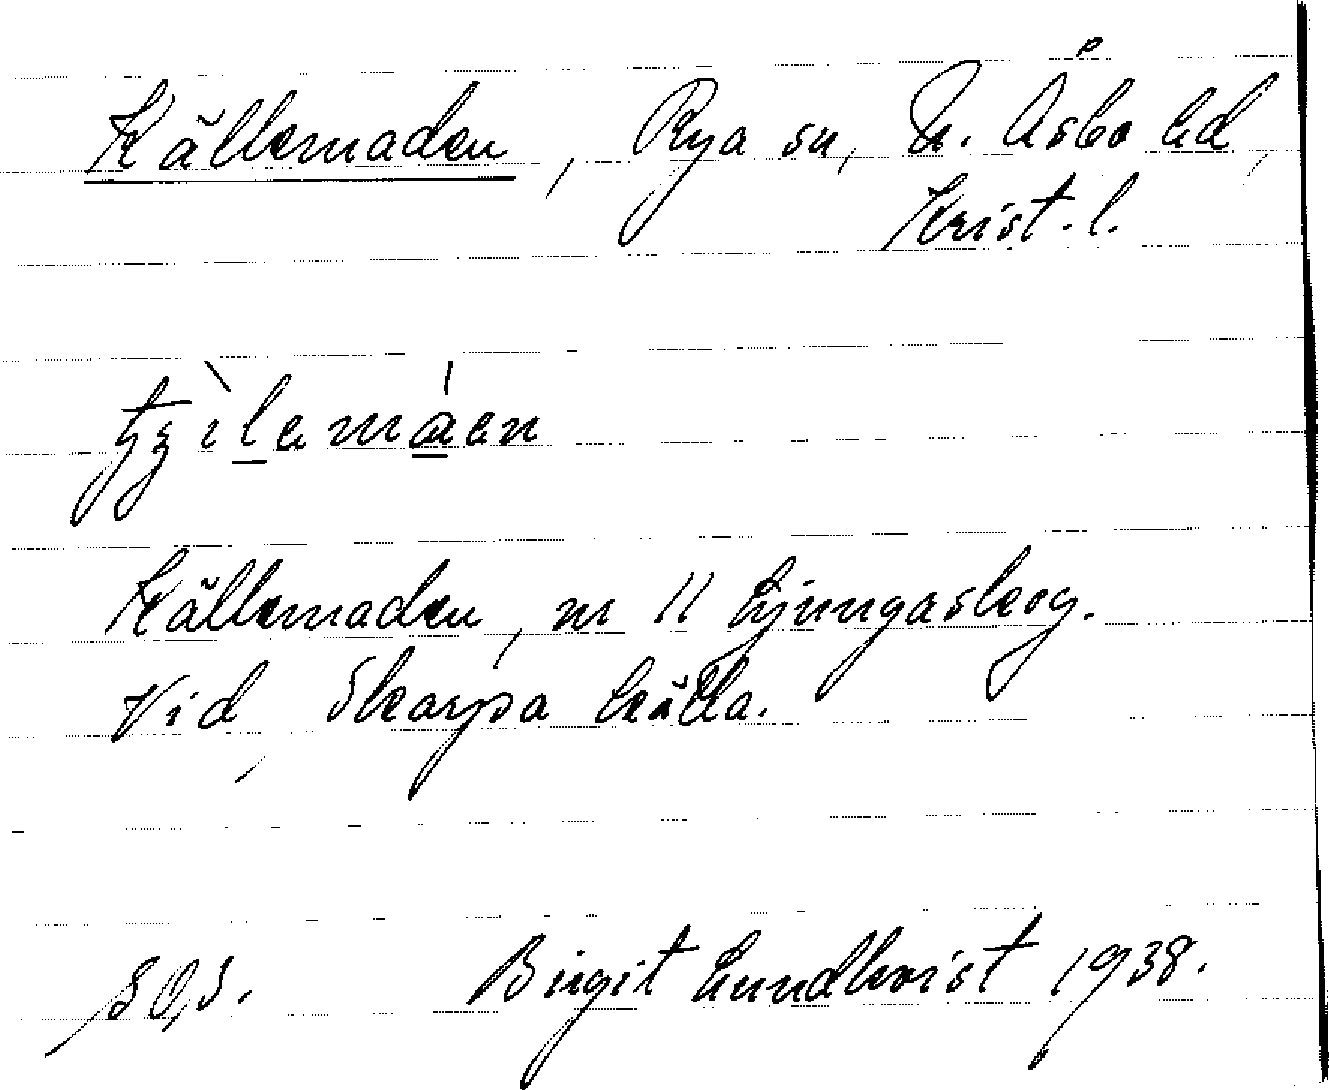 Källemaden, Rya sn, N. Åsbo hd,
Krist. l.
Källemaden, nr 11 Ljungaskog.
Vid Skarpa källa.
Birgit Lundkvist 1938.